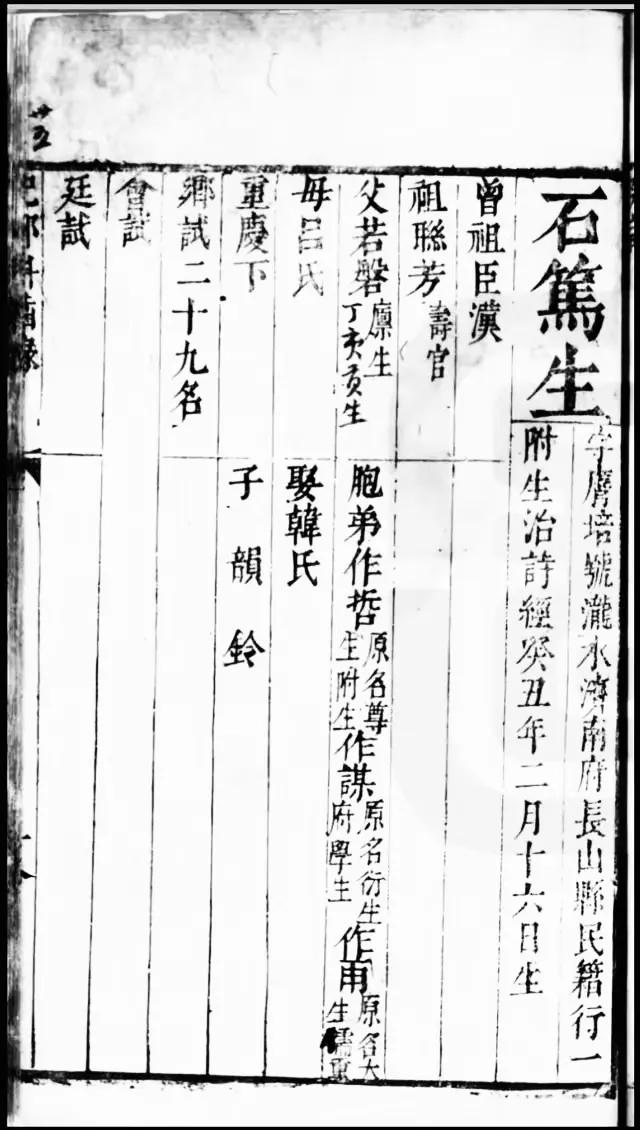 石篤生
字膺培號瀧水濟南府長山縣民籍行一
附生治詩經癸丑年二月十六日生
曾祖臣漢
祖聯芳壽官
父若磐廩生
丁亥貢生
胞弟作哲原名尊
生附生
作謀原名衍生
府學生
作甫原名大
生儒童
母呂氏
娶韓氏
重慶下
子韻鈴
鄉試二十九名
會試
廷試
卯科齒錄
廿五